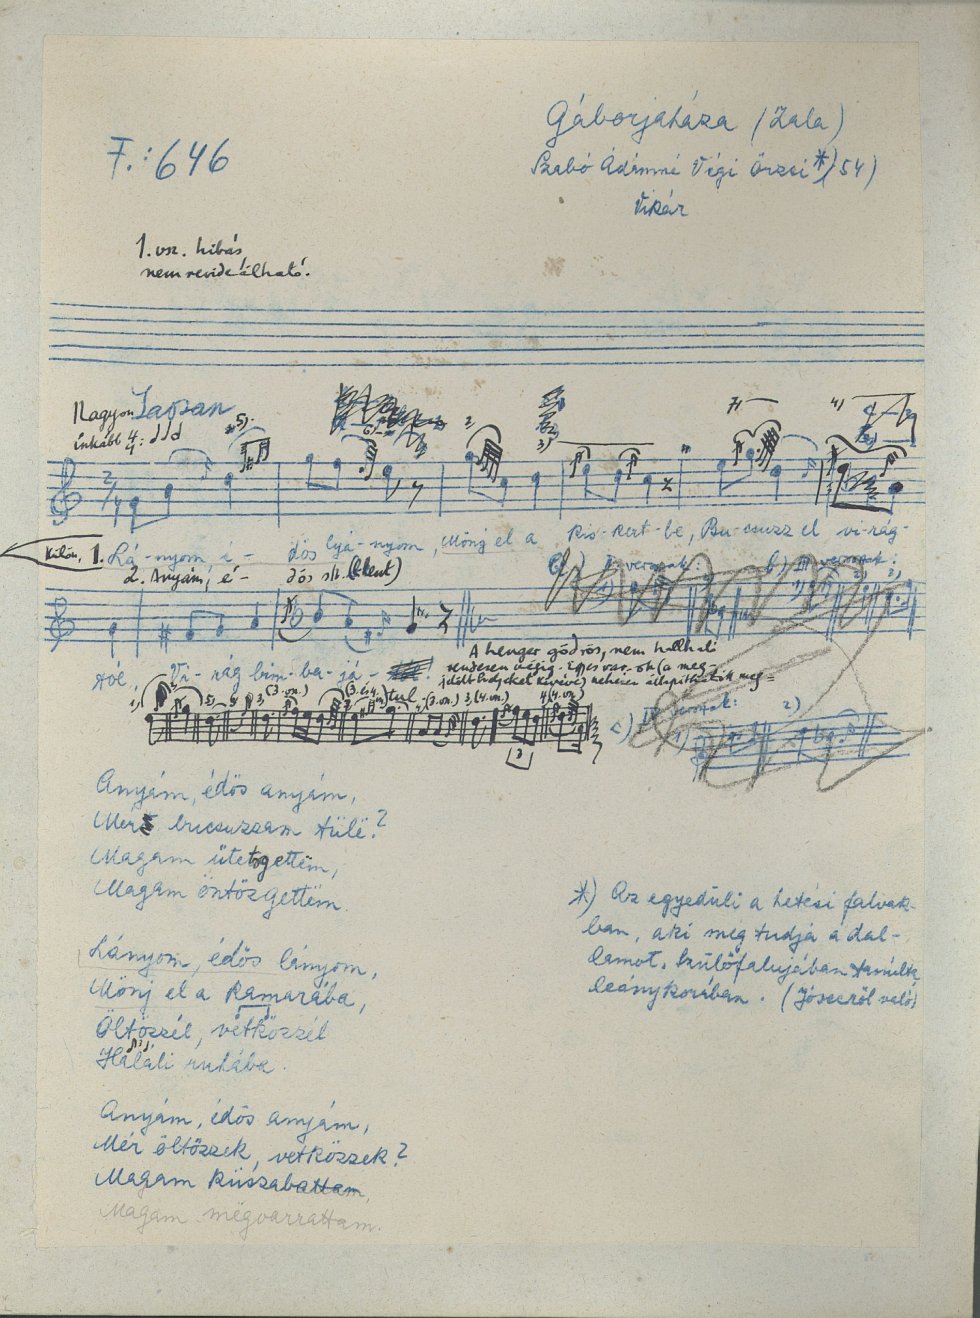 Gáborjaháza (Zala)
F.: 646
Szabó Ádámné Végi Örzsi *) (54)
Vikár
1. vsz. hibás
nem revideálható.
Nagyon Lassan
inkább 4/4:
2/4
5)
6)
2)
3)
7)
4)
Külön. 1. Lá-nyom, é- dös lyá-nyom, Mönj el a kis-kert-be, Bu-csuzz el vi-rág-
2. Anyám, é- dös stb. (lent)
a) versszak: b) III versszak:
tól, Vi-rág-bim-ba-já-tul.
A henger gödrös, nem hallható
rendesen végig. Egyes var.-ok (a meg-
jelölt helyeket kivéve) nehezen állapíthatók meg
(3. vsz.) (3. és 4. vsz.) (3. vsz.) 3) (4. vsz.) 4) (4. vsz.)
c) IV versszak: 2)
Anyám, édös anyám,
Mer bucsuzzam tülë?
Magam ültetgettem,
Magam öntözgettëm.
Lányom, édös lányom,
Mönj el a kamarába,
Öltözzél, vetközzél
Haláli ruhába.
Anyám, édös anyám,
Mér öltözzek, vetközzek?
Magam küszabattam,
Magam mëgvarrattam.
*) Az egyedüli a hetési falvak-
ban, aki még tudja a dal-
lamot. Szülőfalujában tanulta
leánykorában. (Jósecről való)